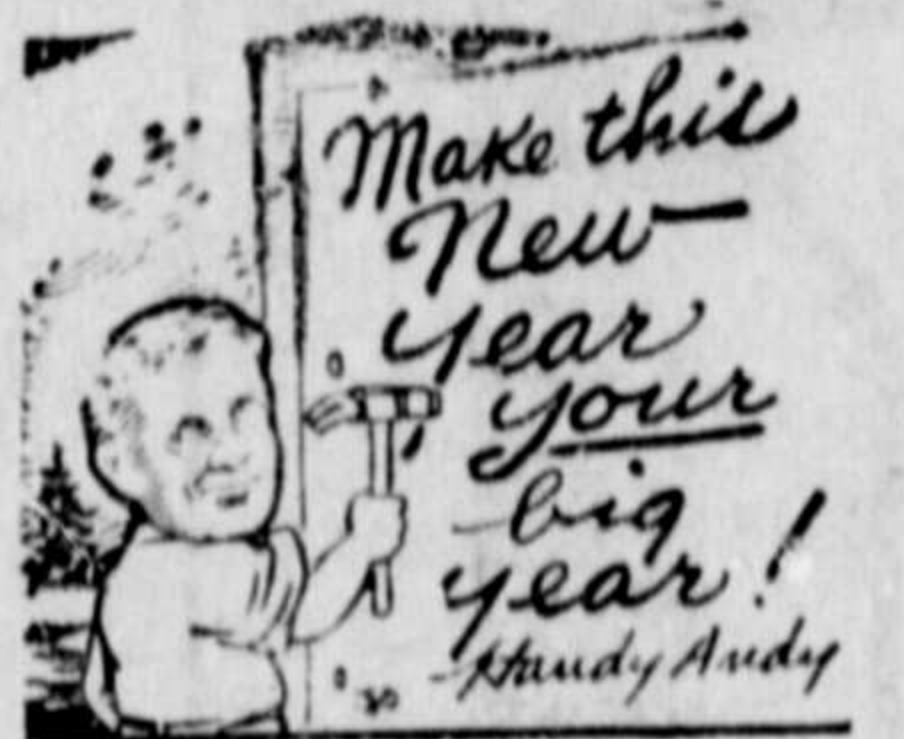 Make this
New
year
your
big
year!
-Handy Andy